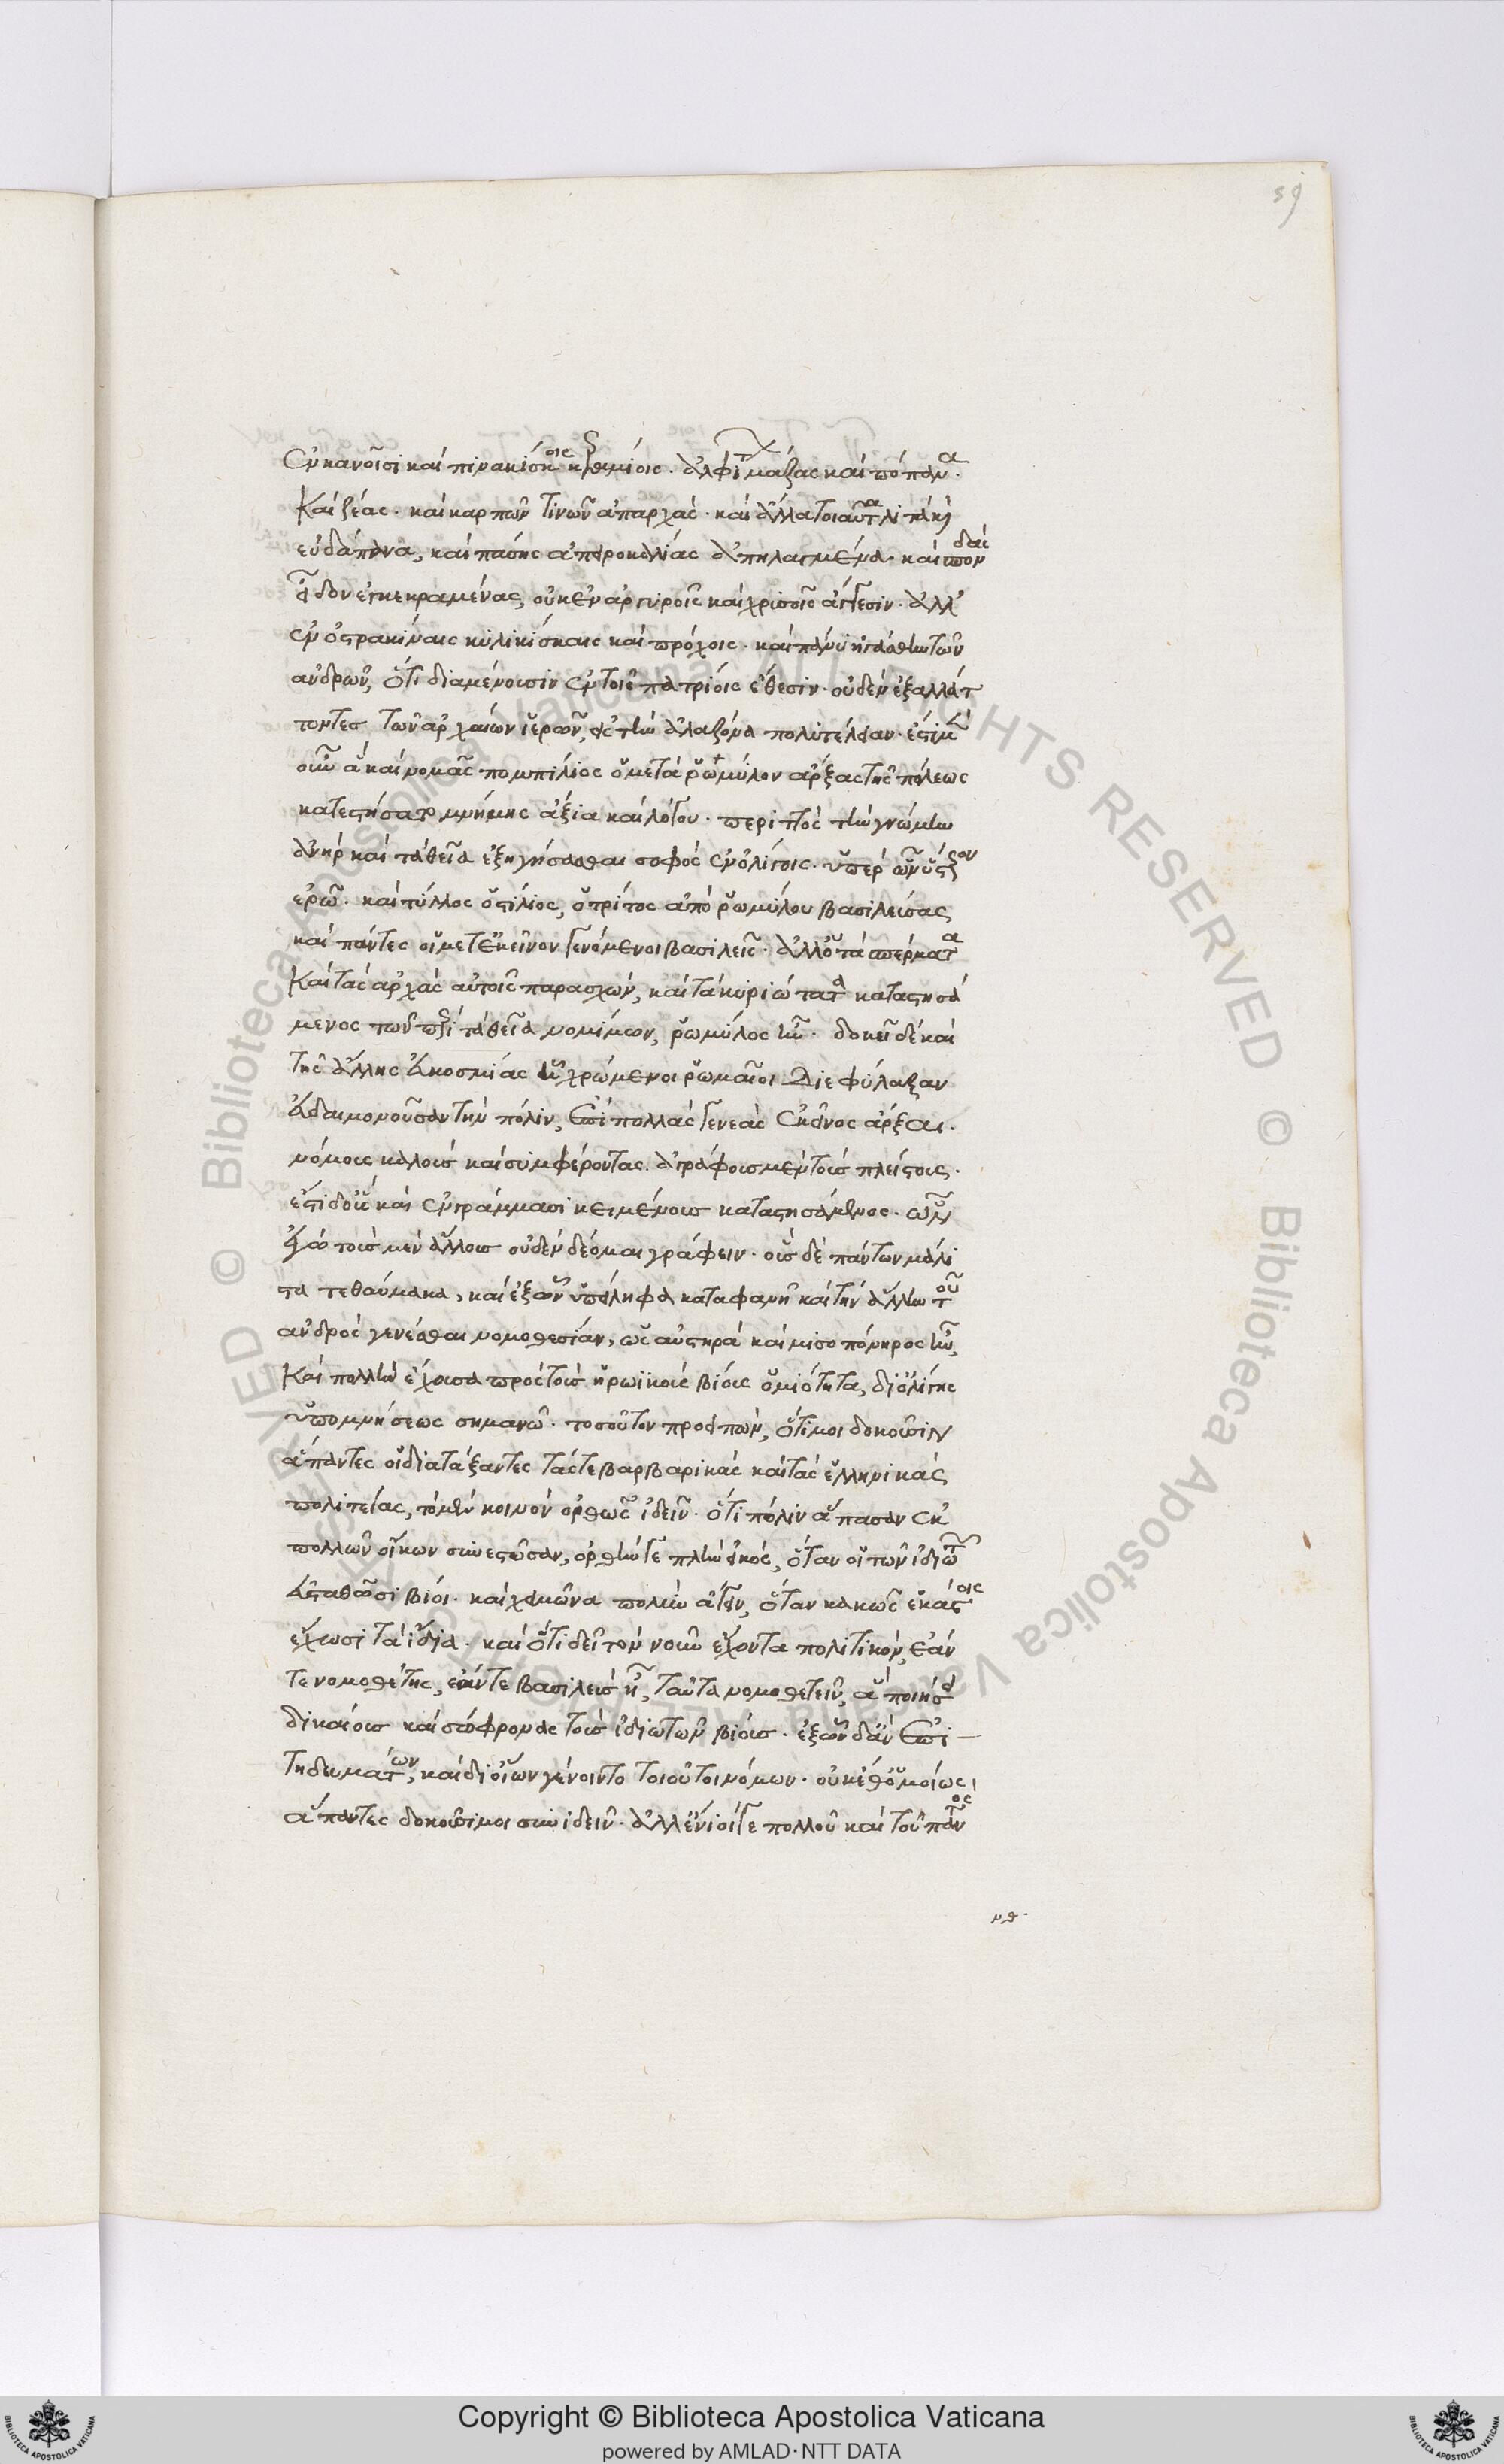 59
ἐν κανοῖσι καὶ πινακίσκοις κεραμίοις. ἀλφίτων μάζας καὶ πόπανα.
καὶ ζέας. καὶ καρπῶν τινῶν ἀπαρχάς. καὶ ἄλλα τοιαῦτα λιτὰ καὶ
εὐδάπανα, καὶ πάσης ἀπειροκαλίας ἀπηλαγμένα. καὶ σπονδάς
εἶδον ἐγκεκραμένας, οὐκ ἐν ἀργυροῖς καὶ χρυσοῖς ἄγγεσιν. ἀλλ'
ἐν ὀστρακίναις κυλικίσκαις καὶ πρόχοις. καὶ πάνυ ἠγάσθην τῶν
ἀνδρῶν, ὅτι διαμένουσιν ἐν τοῖς πατρίοις ἔθεσιν. οὐδὲν ἐξαλλάτ
τοντες τῶν ἀρχαίων ἱερῶν, εἰς τὴν ἀλαζόνα πολυτέλειαν. ἔστι μὲν
οὖν ἃ καὶ νομᾶς πομπίλιος ὁ μετὰ ῥωμύλον ἄρξας τῆς πόλεως
κατεστήσατο μνήμης ἄξια καὶ λόγου. περιττὸς τὴν γνώμην
ἀνὴρ καὶ τὰ θεῖα ἐξηγήσασθαι σοφὸς ἐν ὀλίγοις. ὑπὲρ ὧν ὕστερον
ἐρῶ. καὶ τύλλος ὁστίλιος, ὁ τρίτος ἀπὸ ῥωμύλου βασιλεύσας,
καὶ πάντες οἱ μετ' ἐκεῖνον γενόμενοι βασιλεῖς. ἀλλ' ὁ τὰ σπέρματα
καὶ τὰς ἀρχὰς αὐτοῖς παρασχών, καὶ τὰ κυριώτατα καταστησά
μενος τῶν περὶ τὰ θεῖα νομίμων, ῥωμύλος ἦν. δοκεῖ δὲ καὶ
τῆς ἄλλης εὐκοσμίας ᾗ χρώμενοι ῥωμαῖοι διεφύλαξαν
εὐδαιμονοῦσαν τὴν πόλιν, ἐπὶ πολλὰς γενεὰς ἐκεῖνος ἄρξαι.
νόμους καλοὺς καὶ συμφέροντας. ἀγράφους μὲν τοὺς πλείστους.
ἔστι δ' οὓς καὶ ἐν γράμμασι κειμένους καταστησάμενος. ὧν
ἐγὼ τοὺς μὲν ἄλλους οὐδὲν δέομαι γράφειν. οὓς δὲ πάντων μάλι
στα τεθαύμακα, καὶ ἐξ ὧν ὑπείληφα καταφανῆ καὶ τὴν ἄλλην τοῦ
ἀνδρὸς γενέσθαι νομοθεσίαν, ὡς αὐστηρὰ καὶ μισοπόνηρος ἦν,
καὶ πολλὴν ἔχουσα πρὸς τοὺς ἡρωϊκοὺς βίους ὁμιότητα, δι' ὀλίγης
ὑπομνήσεως σημανῶ. τοσοῦτον προειπών, ὅτι μοι δοκοῦσιν
ἅπαντες οἱ διατάξαντες τάς τε βαρβαρικὰς καὶ τὰς ἑλληνικὰς
πολιτείας, τὸ μὲν κοινὸν ὀρθῶς ἰδεῖν. ὅτι πόλιν ἅπασαν ἐκ
πολλῶν οἴκων συνεστῶσαν, ὀρθήν τε πλεῖν εἰκός, ὅταν οἱ τῶν ἰδιωτῶν
εὐσταθῶσι βίοι. καὶ χειμῶνα πολὺν ἄγειν, ὅταν κακῶς ἑκάστοις
ἔχωσι τὰ ἴδια. καὶ ὅτι δεῖ τὸν νοῦν ἔχοντα πολιτικόν, ἐάν
τε νομοθέτης, ἐάν τε βασιλεὺς ᾖ, ταῦτα νομοθετεῖν, ἃ ποιήσει
δικαίους καὶ σώφρονας τοὺς ἰδιωτῶν βίους. ἐξ ὧν δ' ἂν ἐπι
τηδευμάτων, καὶ δι' οἵων γένοιντο τοιοῦτοι νόμων. οὐκέθ' ὁμοίως
ἅπαντες δοκοῦσί μοι συνιδεῖν. ἀλλ' ἔνιοί γε πολλοῦ καὶ τοῦ παντός
μθ.
© Biblioteca Apostolica Vaticana ALL RIGHTS RESERVED © Biblioteca Apostolica Vaticana ALL RIGHTS RESERVED
Copyright © Biblioteca Apostolica Vaticana
powered by AMLAD·NTT DATA